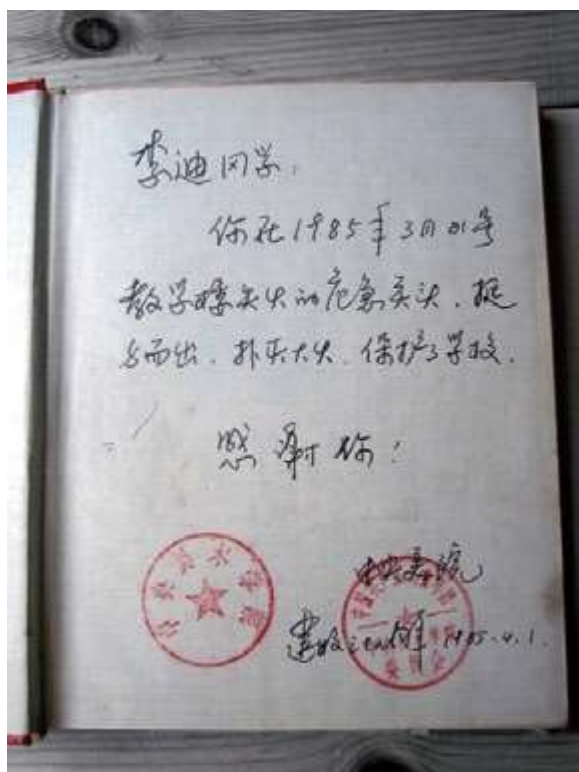 李迪同学：
你在1985年3月21号
教学楼失火的危急关头，挺
身而出，扑灭大火，保护了学校。
感谢你！
中央美院
1985.4.1.
中央美术学院